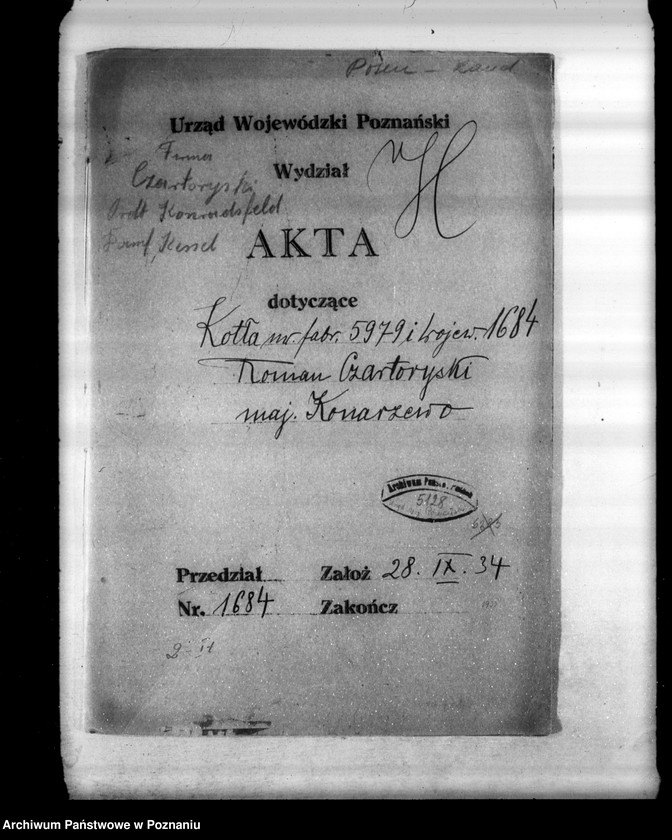 Posen - Land
Urząd Wojewódzki Poznański
Firma
Wydział H
Czartoryski
Konradsfeld
Kessel
AKTA
dotyczące
Kotła nr. fabr. 5979 i wojew. 1684
Roman Czartoryski
maj. Konarzewo
Archiwum
5128
Przedział Założ 28. IX. 34
Nr. 1684 Zakończ
Archiwum Państwowe w Poznaniu